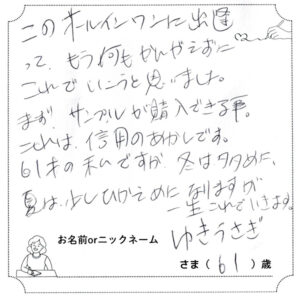 このオールインワンに出逢
って、もう何もかんがえずに
これでいこうと思いました。
まず、サンプルが購入できる事。
これは、信用のあかしです。
61才の私ですが、冬は多めに、
夏は、少しひかえめになりますが
一生これでいきます。
お名前orニックネーム
ゆきうさぎ
さま(61)歳